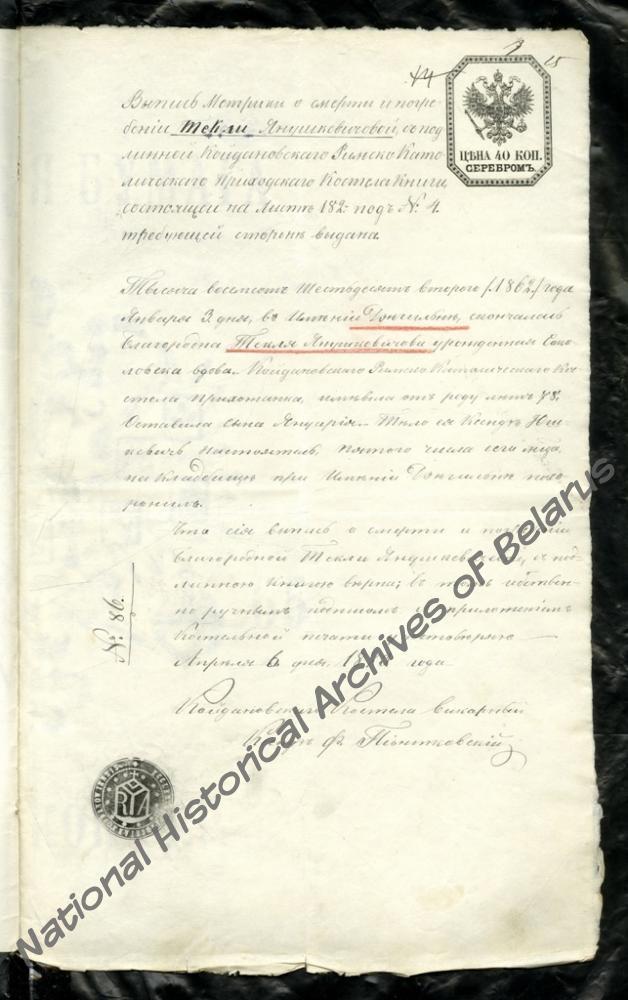 14 2 15
ЦѢНА 40 КОП.
СЕРЕБРОМЪ.
Выпись Метрики о смерти и погре-
бенiи Текли Янушкевичовой, съ под-
линной Койдановскаго Римско Като-
лическаго Приходскаго Костела Книги,
состоящей на листѣ 182. подъ №. 4.
требующей сторонѣ выдана.
Тысяча восемсотъ Шестьдесятъ втораго /1862/ года
Января 3 дня, въ Имѣнiи Дзягильнѣ, скончалась
Благородная Текля Янушкевичова урожденная Соко-
ловска вдова. Койдановскаго Римско Католическаго Ко-
стела прихожанка, имѣвша отъ роду лѣтъ 78.
Оставила сына Януарiя. Тѣло ея Ксендзъ Юш-
кевичъ настоятель, пятого числа сего м-ца,
на кладбищѣ при Имѣнiи Дзягильнѣ похо-
ронилъ.
Что сiя выпись о смерти и
Благородной Текли Янушкевичовой, съ под-
линною книгою вѣрна; въ томъ собствен-
но ручнымъ подписомъ и приложенiемъ
Костельной печати удостовѣряю
Апрѣля 6 дня, года
Койдановскаго Костела Викарный
Ксендзъ Ф. Пiонтковскiй
№: 86.
National Historical Archives of Belarus